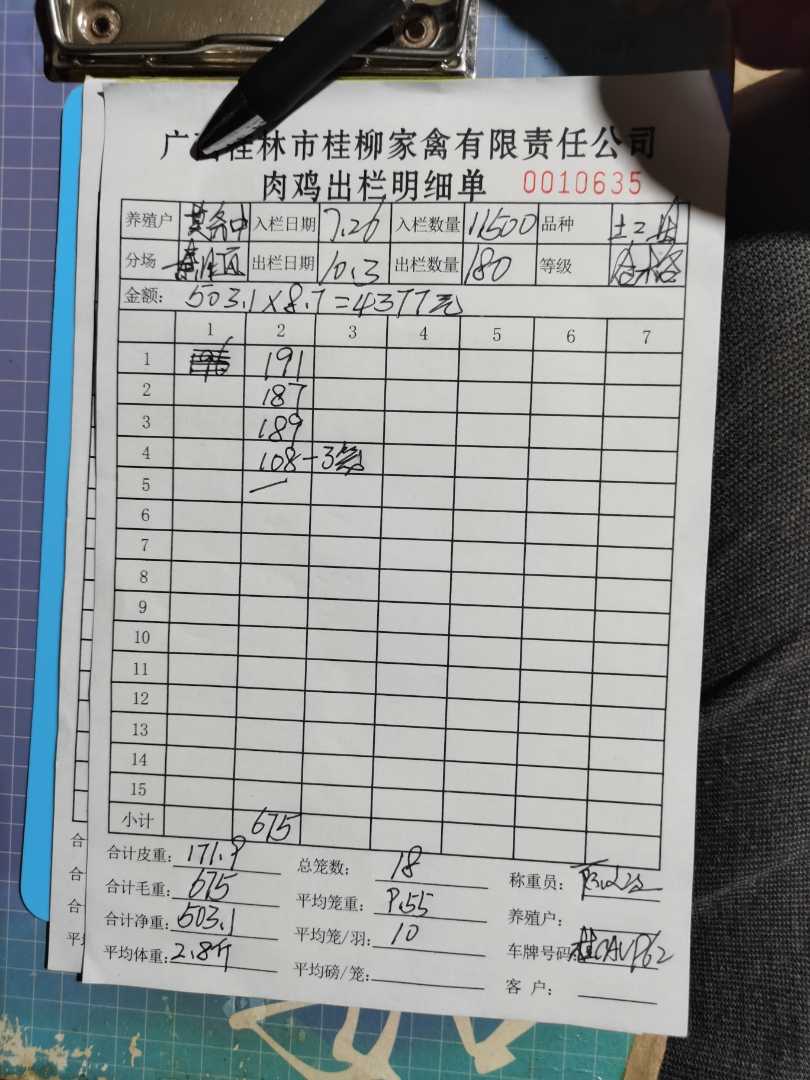 广西桂林市桂柳家禽有限责任公司
肉鸡出栏明细单 0010635
养殖户 入栏日期 7.26 入栏数量 11500 品种 土2
分场 出栏日期 10.3 出栏数量 180 等级 合格
金额: 503.1×8.7=4377元
1 2 3 4 5 6 7
1 191
2 187
3 189
4 108-3笼
5 一
6
7
8
9
10
11
12
13
14
15
小计 675
合计皮重: 171.9 总笼数: 18 称重员:
合计毛重: 675 平均笼重: 9.55 养殖户:
合计净重: 503.1 平均笼/羽: 10 车牌号码:
平均体重: 2.8斤 平均磅/笼: 客 户:
合
合
合
平均